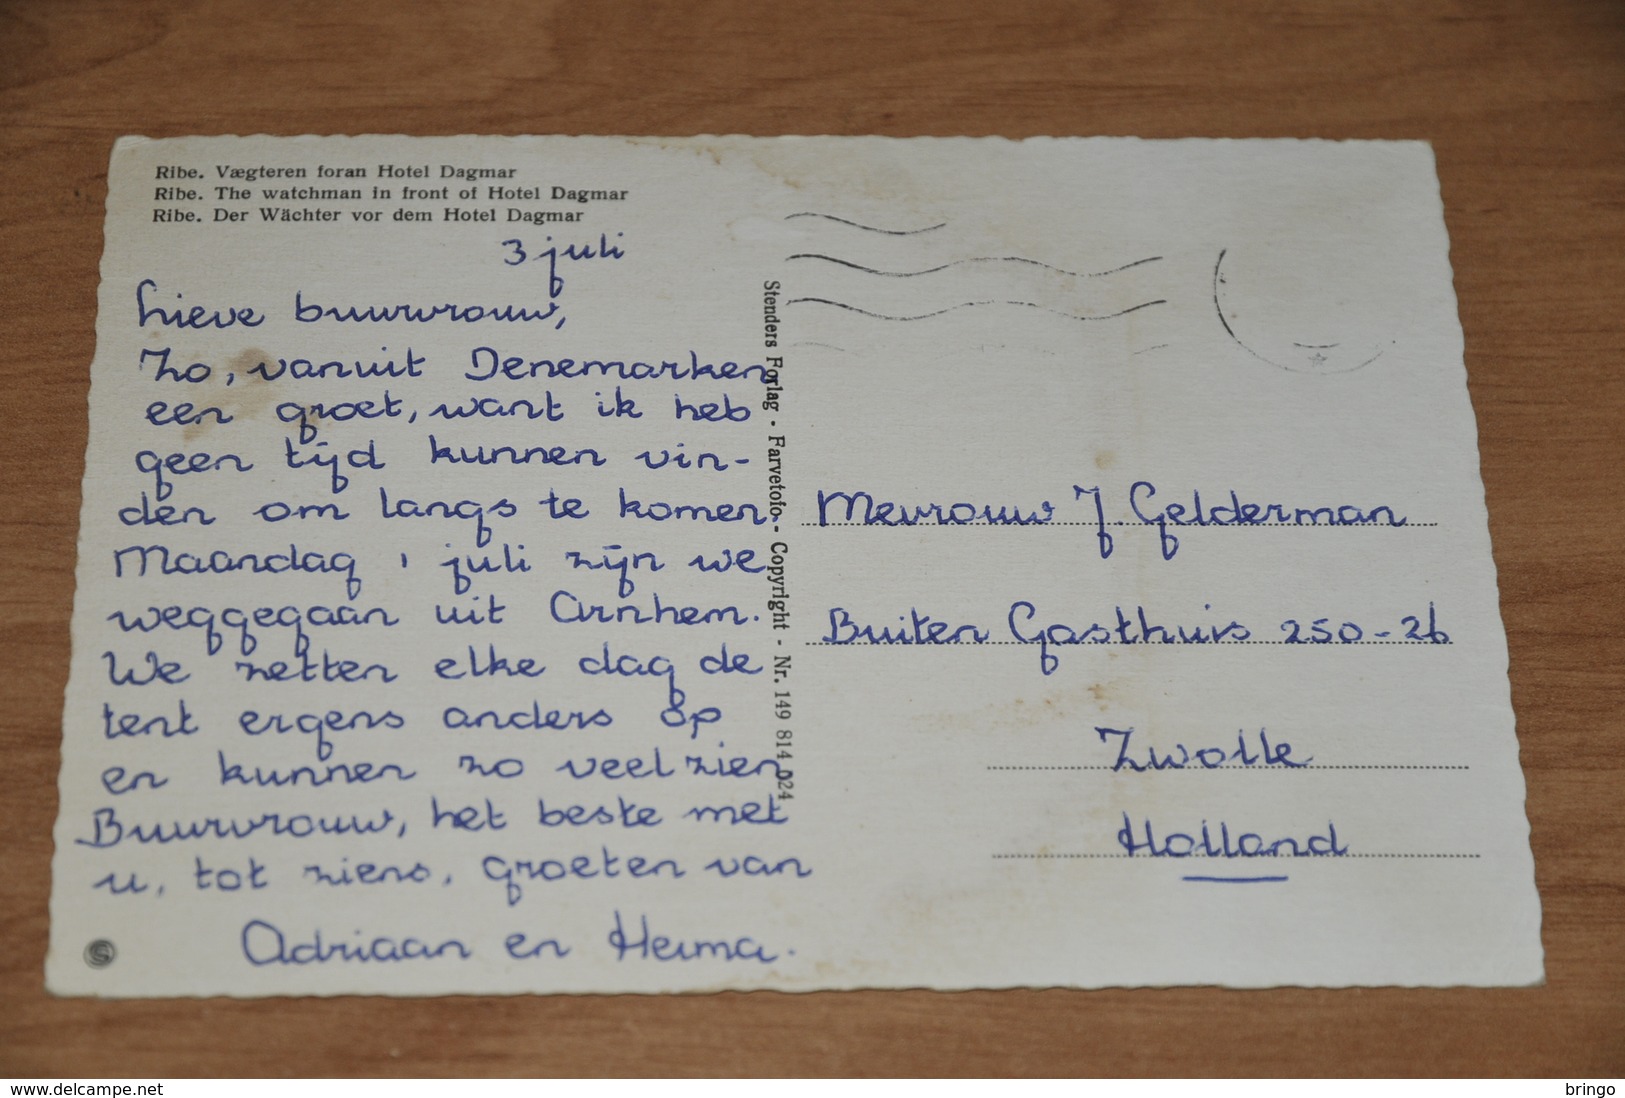 Ribe. Vægteren foran Hotel Dagmar
Ribe. The watchman in front of Hotel Dagmar
Ribe. Der Wächter vor dem Hotel Dagmar
3 juli
Lieve buurvrouw,
Zo, vanuit Denemarken
een groet, want ik heb
geen tijd kunnen vin-
den om langs te komen.
Maandag 1 juli zijn we
weggegaan uit Arnhem.
We zetten elke dag de
tent ergens anders op
en kunnen zo veel zien
Buurvrouw, het beste met
u, tot ziens, groeten van
Adriaan en Herma.
Stenders Forlag - Farvetofo - Copyright - Nr. 149 814 024
Mevrouw J. Gelderman
Buiten Gasthuis 250-26
Zwolle
Holland
www.delcampe.net
bringo